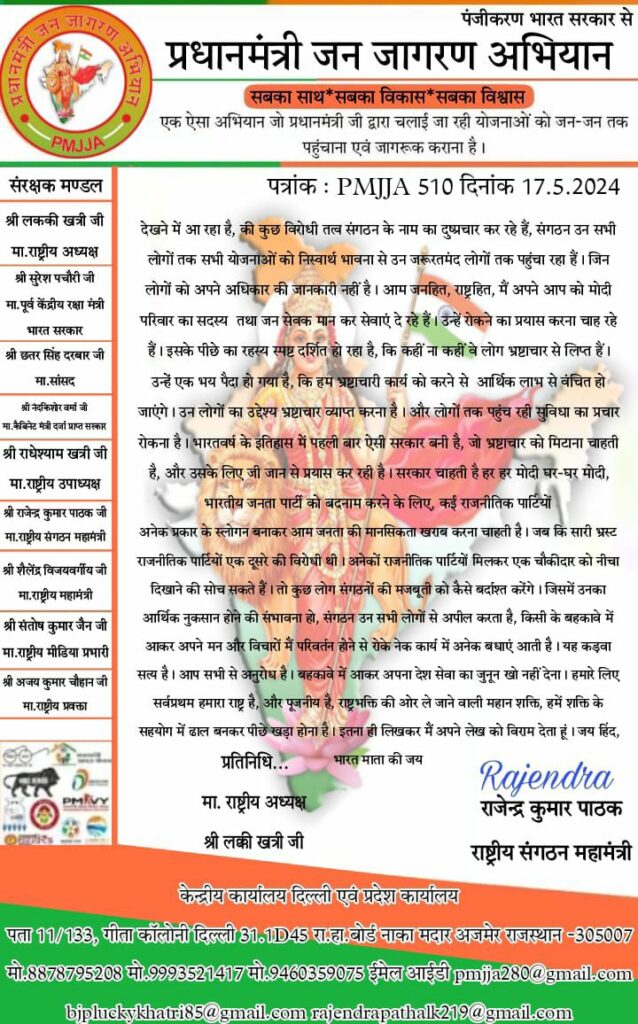 पंजीकरण भारत सरकार से
प्रधानमंत्री जन जागरण अभियान
प्रधानमंत्री जन जागरण अभियान
PMJJA
सबका साथ*सबका विकास*सबका विश्वास
एक ऐसा अभियान जो प्रधानमंत्री जी द्वारा चलाई जा रही योजनाओं को जन-जन तक
पहुंचाना एवं जागरूक कराना है।
संरक्षक मण्डल
श्री लक्की खत्री जी
मा.राष्ट्रीय अध्यक्ष
श्री सुरेश पचौरी जी
मा.पूर्व केंद्रीय रक्षा मंत्री
भारत सरकार
श्री छतर सिंह दरबार जी
मा.सांसद
श्री नंदकिशोर वर्मा जी
मा.कैबिनेट मंत्री दर्जा प्राप्त सरकार
श्री राधेश्याम खत्री जी
मा.राष्ट्रीय उपाध्यक्ष
श्री राजेन्द्र कुमार पाठक जी
मा.राष्ट्रीय संगठन महामंत्री
श्री शैलेंद्र विजयवर्गीय जी
मा.राष्ट्रीय महामंत्री
श्री संतोष कुमार जैन जी
मा.राष्ट्रीय मीडिया प्रभारी
श्री अजय कुमार चौहान जी
मा.राष्ट्रीय प्रवक्ता
पत्रांक : PMJJA 510 दिनांक 17.5.2024
देखने में आ रहा है, की कुछ विरोधी तत्व संगठन के नाम का दुष्प्रचार कर रहे हैं, संगठन उन सभी
लोगों तक सभी योजनाओं को निस्वार्थ भावना से उन जरूरतमंद लोगों तक पहुंचा रहा हैं। जिन
लोगों को अपने अधिकार की जानकारी नहीं है। आम जनहित, राष्ट्रहित, मैं अपने आप को मोदी
परिवार का सदस्य तथा जन सेवक मान कर सेवाएं दे रहे हैं। उन्हें रोकने का प्रयास करना चाह रहे
हैं। इसके पीछे का रहस्य स्पष्ट दर्शित हो रहा है, कि कहीं ना कहीं वे लोग भ्रष्टाचार से लिप्त हैं।
उन्हें एक भय पैदा हो गया है, कि हम भ्रष्टाचारी कार्य को करने से आर्थिक लाभ से वंचित हो
जाएंगे। उन लोगों का उद्देश्य भ्रष्टाचार व्याप्त करना है। और लोगों तक पहुंच रही सुविधा का प्रचार
रोकना है। भारतवर्ष के इतिहास में पहली बार ऐसी सरकार बनी है, जो भ्रष्टाचार को मिटाना चाहती
है, और उसके लिए जी जान से प्रयास कर रही है। सरकार चाहती है हर हर मोदी घर-घर मोदी,
भारतीय जनता पार्टी को बदनाम करने के लिए, कई राजनीतिक पार्टियों
अनेक प्रकार के स्लोगन बनाकर आम जनता की मानसिकता खराब करना चाहती है। जब कि सारी भ्रस्ट
राजनीतिक पार्टियों एक दूसरे की विरोधी थी। अनेकों राजनीतिक पार्टियों मिलकर एक चौकीदार को नीचा
दिखाने की सोच सकते हैं। तो कुछ लोग संगठनों की मजबूती को कैसे बर्दाश्त करेंगे। जिसमें उनका
आर्थिक नुकसान होने की संभावना हो, संगठन उन सभी लोगों से अपील करता है, किसी के बहकावे में
आकर अपने मन और विचारों मैं परिवर्तन होने से रोके नेक कार्य में अनेक बधाएं आती है। यह कड़वा
सत्य है। आप सभी से अनुरोध है। बहकावे में आकर अपना देश सेवा का जुनून खो नहीं देना। हमारे लिए
सर्वप्रथम हमारा राष्ट्र है, और पूजनीय है, राष्ट्रभक्ति की ओर ले जाने वाली महान शक्ति, हमें शक्ति के
सहयोग में ढाल बनकर पीछे खड़ा होना है। इतना ही लिखकर मैं अपने लेख को विराम देता हूं। जय हिंद,
भारत माता की जय
प्रतिनिधि...
मा. राष्ट्रीय अध्यक्ष
श्री लक्की खत्री जी
Rajendra
राजेन्द्र कुमार पाठक
राष्ट्रीय संगठन महामंत्री
केन्द्रीय कार्यालय दिल्ली एवं प्रदेश कार्यालय
पता 11/133, गीता कॉलोनी दिल्ली 31.1D45 रा.हा.बोर्ड नाका मदार अजमेर राजस्थान -305007
मो.8878795208 मो.9993521417 मो.9460359075 ईमेल आईडी pmjja280@gmail.com
bjpluckykhatri85@gmail.com rajendrapathalk219@gmail.com